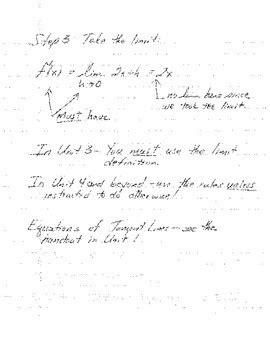 Step 3 Take the limit.
f'(x) = lim 2x+h = 2x
h→0
no lim here since
we took the limit.
Must have
In Unit 3 - You must use the limit
definition.
In Unit 4 and beyond - use the rules unless
instructed to do otherwise!
Equations of Tangent Lines - see the
handout in Unit 1